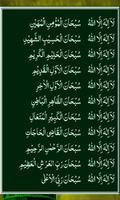 لَآ اِلٰهَ اِلَّا اللهُ سُبْحَانَ الْمُؤْمِنِ الْمُهَيْمِنِ
لَآ اِلٰهَ اِلَّا اللهُ سُبْحَانَ الْحَسِيْبِ الشَّهِيْدِ
لَآ اِلٰهَ اِلَّا اللهُ سُبْحَانَ الْحَلِيْمِ الْكَرِيْمِ
لَآ اِلٰهَ اِلَّا اللهُ سُبْحَانَ الْاَوَّلِ الْقَدِيْمِ
لَآ اِلٰهَ اِلَّا اللهُ سُبْحَانَ الْاَوَّلِ الْاٰخِرِ
لَآ اِلٰهَ اِلَّا اللهُ سُبْحَانَ الظَّاهِرِ الْبَاطِنِ
لَآ اِلٰهَ اِلَّا اللهُ سُبْحَانَ الْكَبِيْرِ الْمُتَعَالِ
لَآ اِلٰهَ اِلَّا اللهُ سُبْحَانَ الْقَاضِى الْحَاجَاتِ
لَآ اِلٰهَ اِلَّا اللهُ سُبْحَانَ الرَّحْمٰنِ الرَّحِيْمِ
لَآ اِلٰهَ اِلَّا اللهُ سُبْحَانَ رَبِّ الْعَرْشِ الْعَظِيْمِ
لَآ اِلٰهَ اِلَّا اللهُ سُبْحَانَ رَبِّيَ الْاَعْلٰى